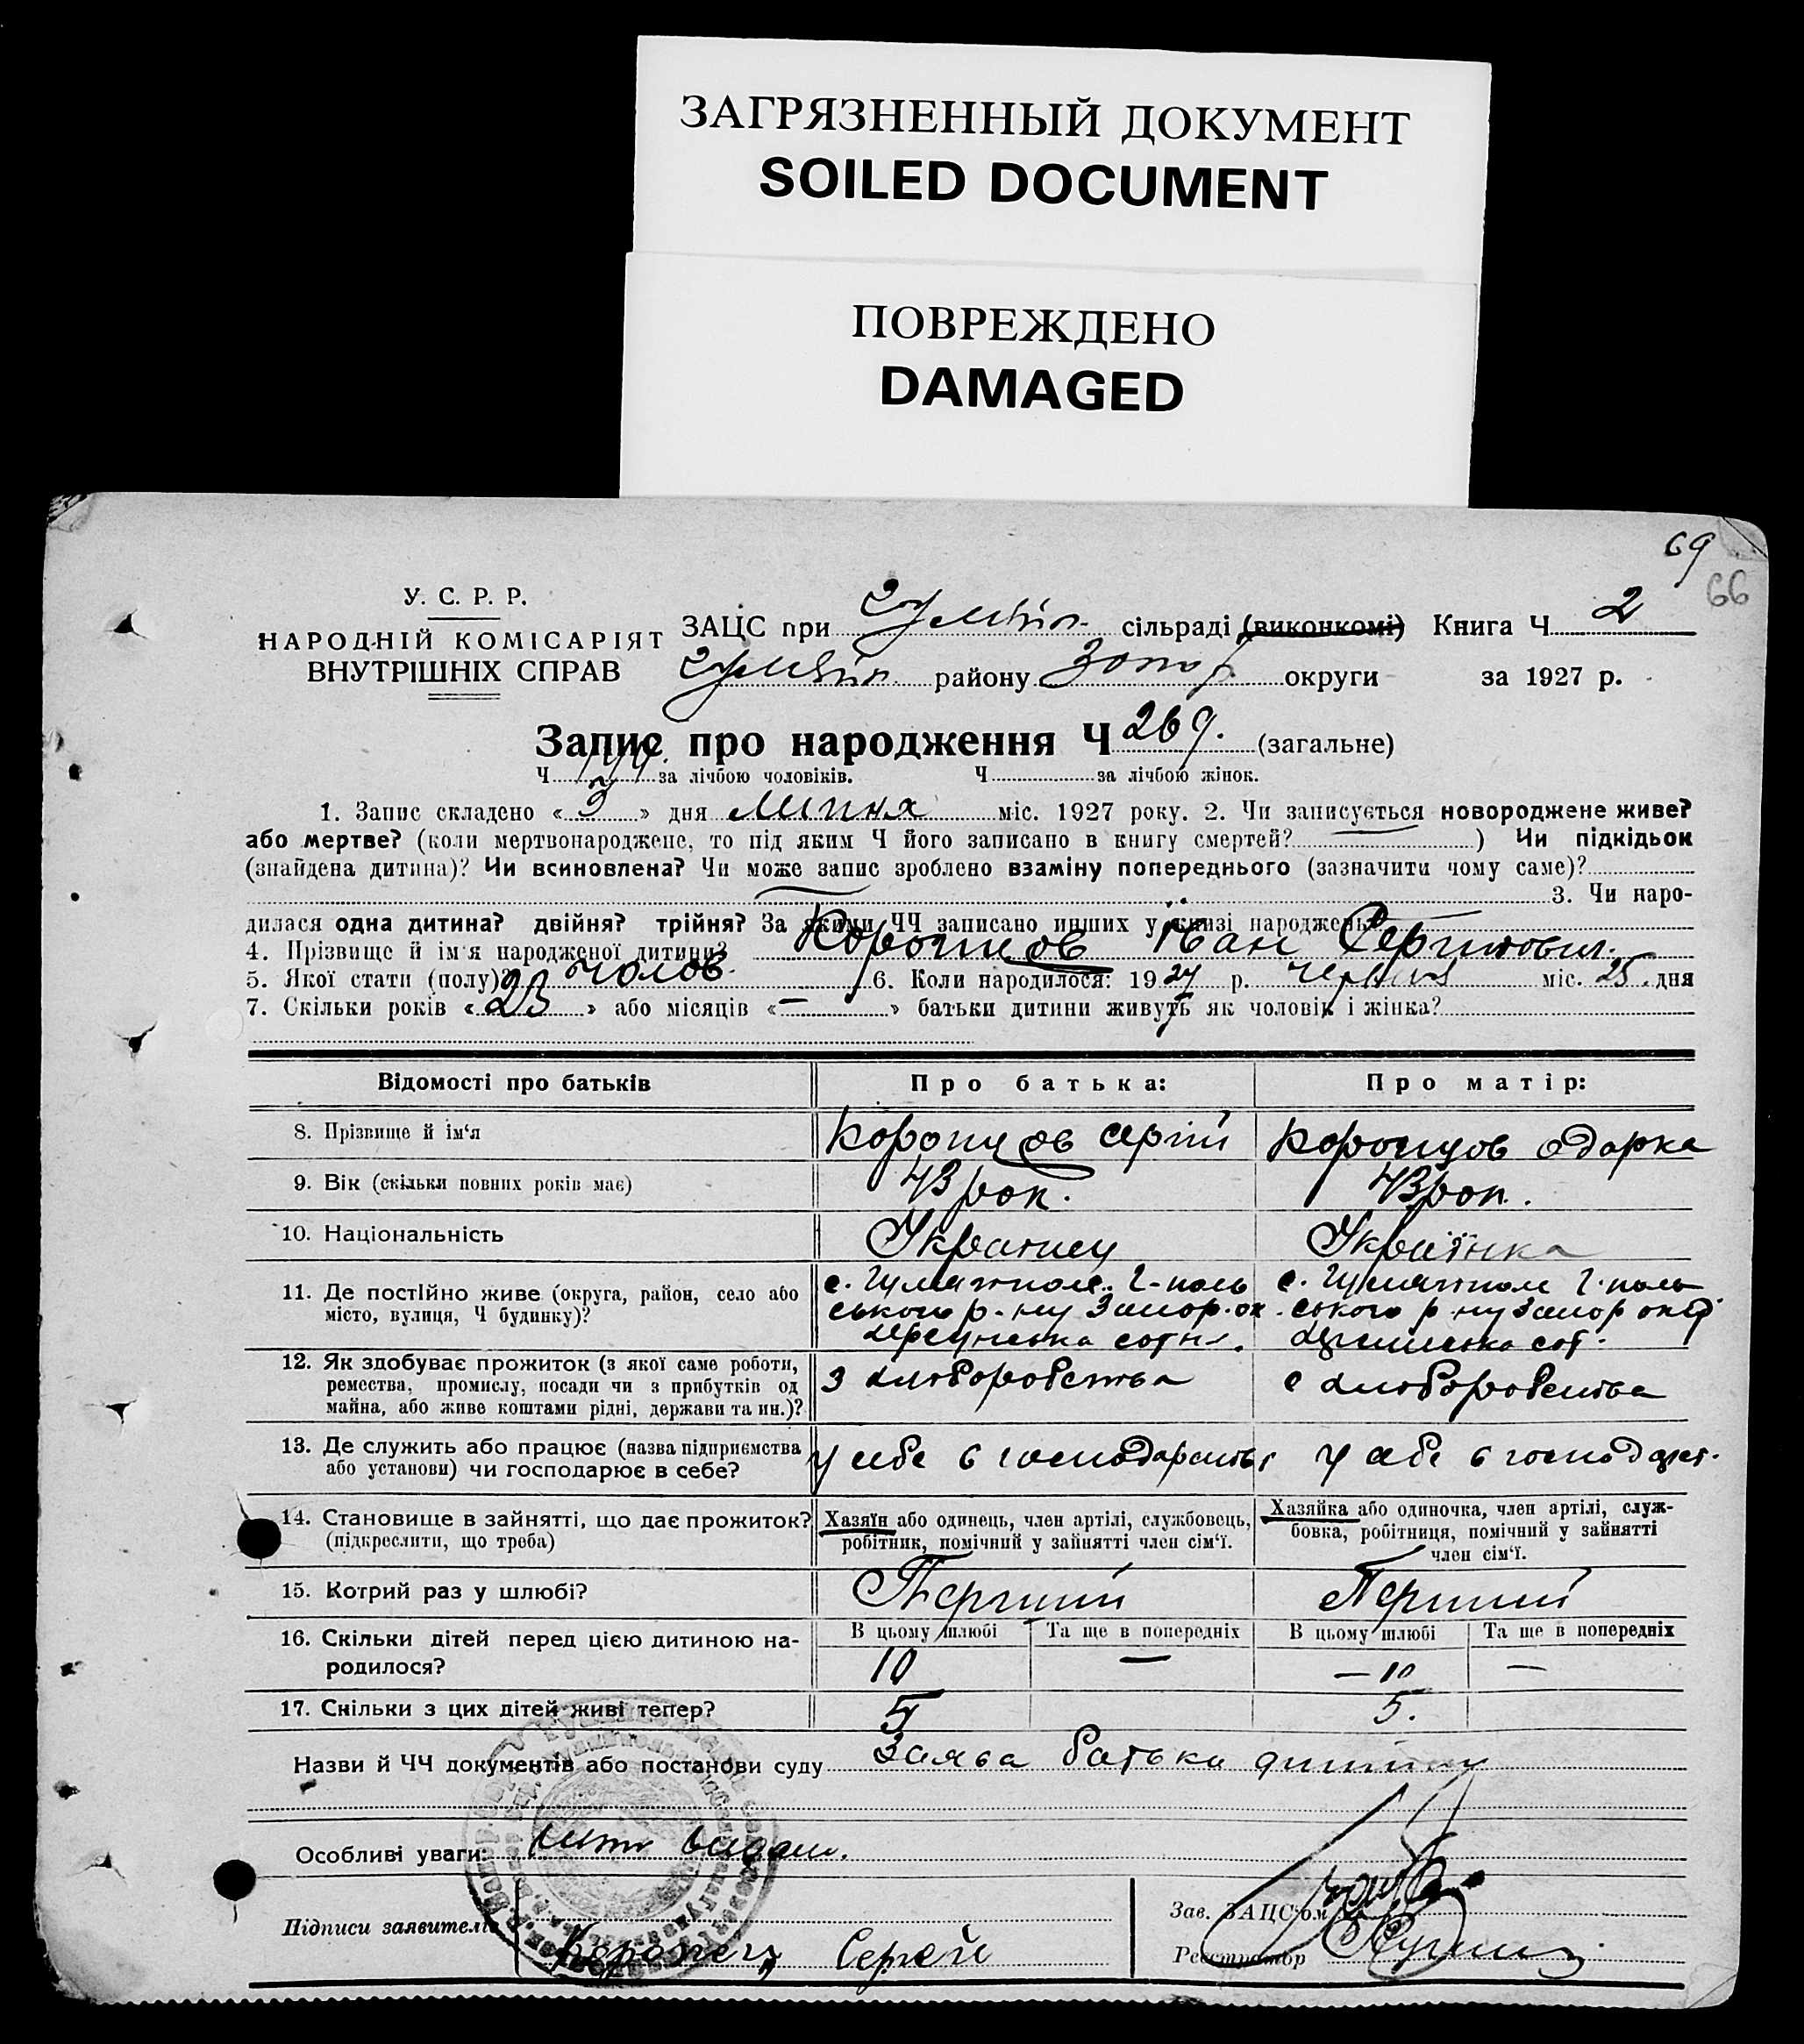 ЗАГРЯЗНЕННЫЙ ДОКУМЕНТ
SOILED DOCUMENT
ПОВРЕЖДЕНО
DAMAGED
69
66
У. С. Р. Р.
НАРОДНІЙ КОМІСАРІЯТ
ВНУТРІШНІХ СПРАВ
ЗАЦС при сільраді (виконкомі) Книга Ч 2
району Запор округи за 1927 р.
Запис про народження Ч 269. (загальне)
Ч 144. за лічбою чоловіків. Ч за лічбою жінок.
1. Запис складено « 3 » дня Липня міс. 1927 року. 2. Чи записується новороджене живе?
або мертве? (коли мертвонароджене, то під яким Ч його записано в книгу смертей? ) Чи підкідьок
(знайдена дитина)? Чи всиновлена? Чи може запис зроблено взаміну попереднього (зазначити чому саме)?
3. Чи наро-
дилася одна дитина? двійня? трійня? За якими ЧЧ записано инших у книзі народжень?
4. Прізвище й ім'я народженої дитини? Коропцов Іван Сергійович.
5. Якої стати (полу)? чолов. 6. Коли народилося: 1927 р. червня міс. 25. дня
7. Скільки років « 23 » або місяців « — » батьки дитини живуть як чоловік і жінка?
Відомості про батьків Про батька: Про матір:
8. Прізвище й ім'я Коропцов Сергій Коропцов Одарка
9. Вік (скільки повних років має) 43 рок. 43 рок.
10. Національність Українец Українка
11. Де постійно живе (округа, район, село або с. Гуляйполе. Г-поль с. Гуляйполе Г-поль
місто, вулиця, Ч будинку)? ського р-ну Запор. ок. ського р-ну Запор окр
сотня. сот.
12. Як здобуває прожиток (з якої саме роботи, з хліборобства с хліборобства
ремества, промислу, посади чи з прибутків од
майна, або живе коштами рідні, держави та ин.)?
13. Де служить або працює (назва підприємства у себе в господарстві у себе в господарст.
або установи) чи господарює в себе?
14. Становище в зайнятті, що дає прожиток? Хазяїн або одинець, член артілі, службовець, Хазяйка або одиночка, член артілі, служ-
(підкреслити, що треба) робітник, помічний у зайнятті член сім'ї. бовка, робітниця, помічний у зайнятті
член сім'ї.
15. Котрий раз у шлюбі? Перший Перший
16. Скільки дітей перед цією дитиною на- В цьому шлюбі Та ще в попередніх В цьому шлюбі Та ще в попередніх
родилося? 10 — — 10 —
17. Скільки з цих дітей живі тепер? 5 5.
Назви й ЧЧ документів або постанови суду Заява батька дитини
Особливі уваги: видан.
Підписи заявителів Коропец Сергей
Зав. ЗАЦС'ом
Реєстратор